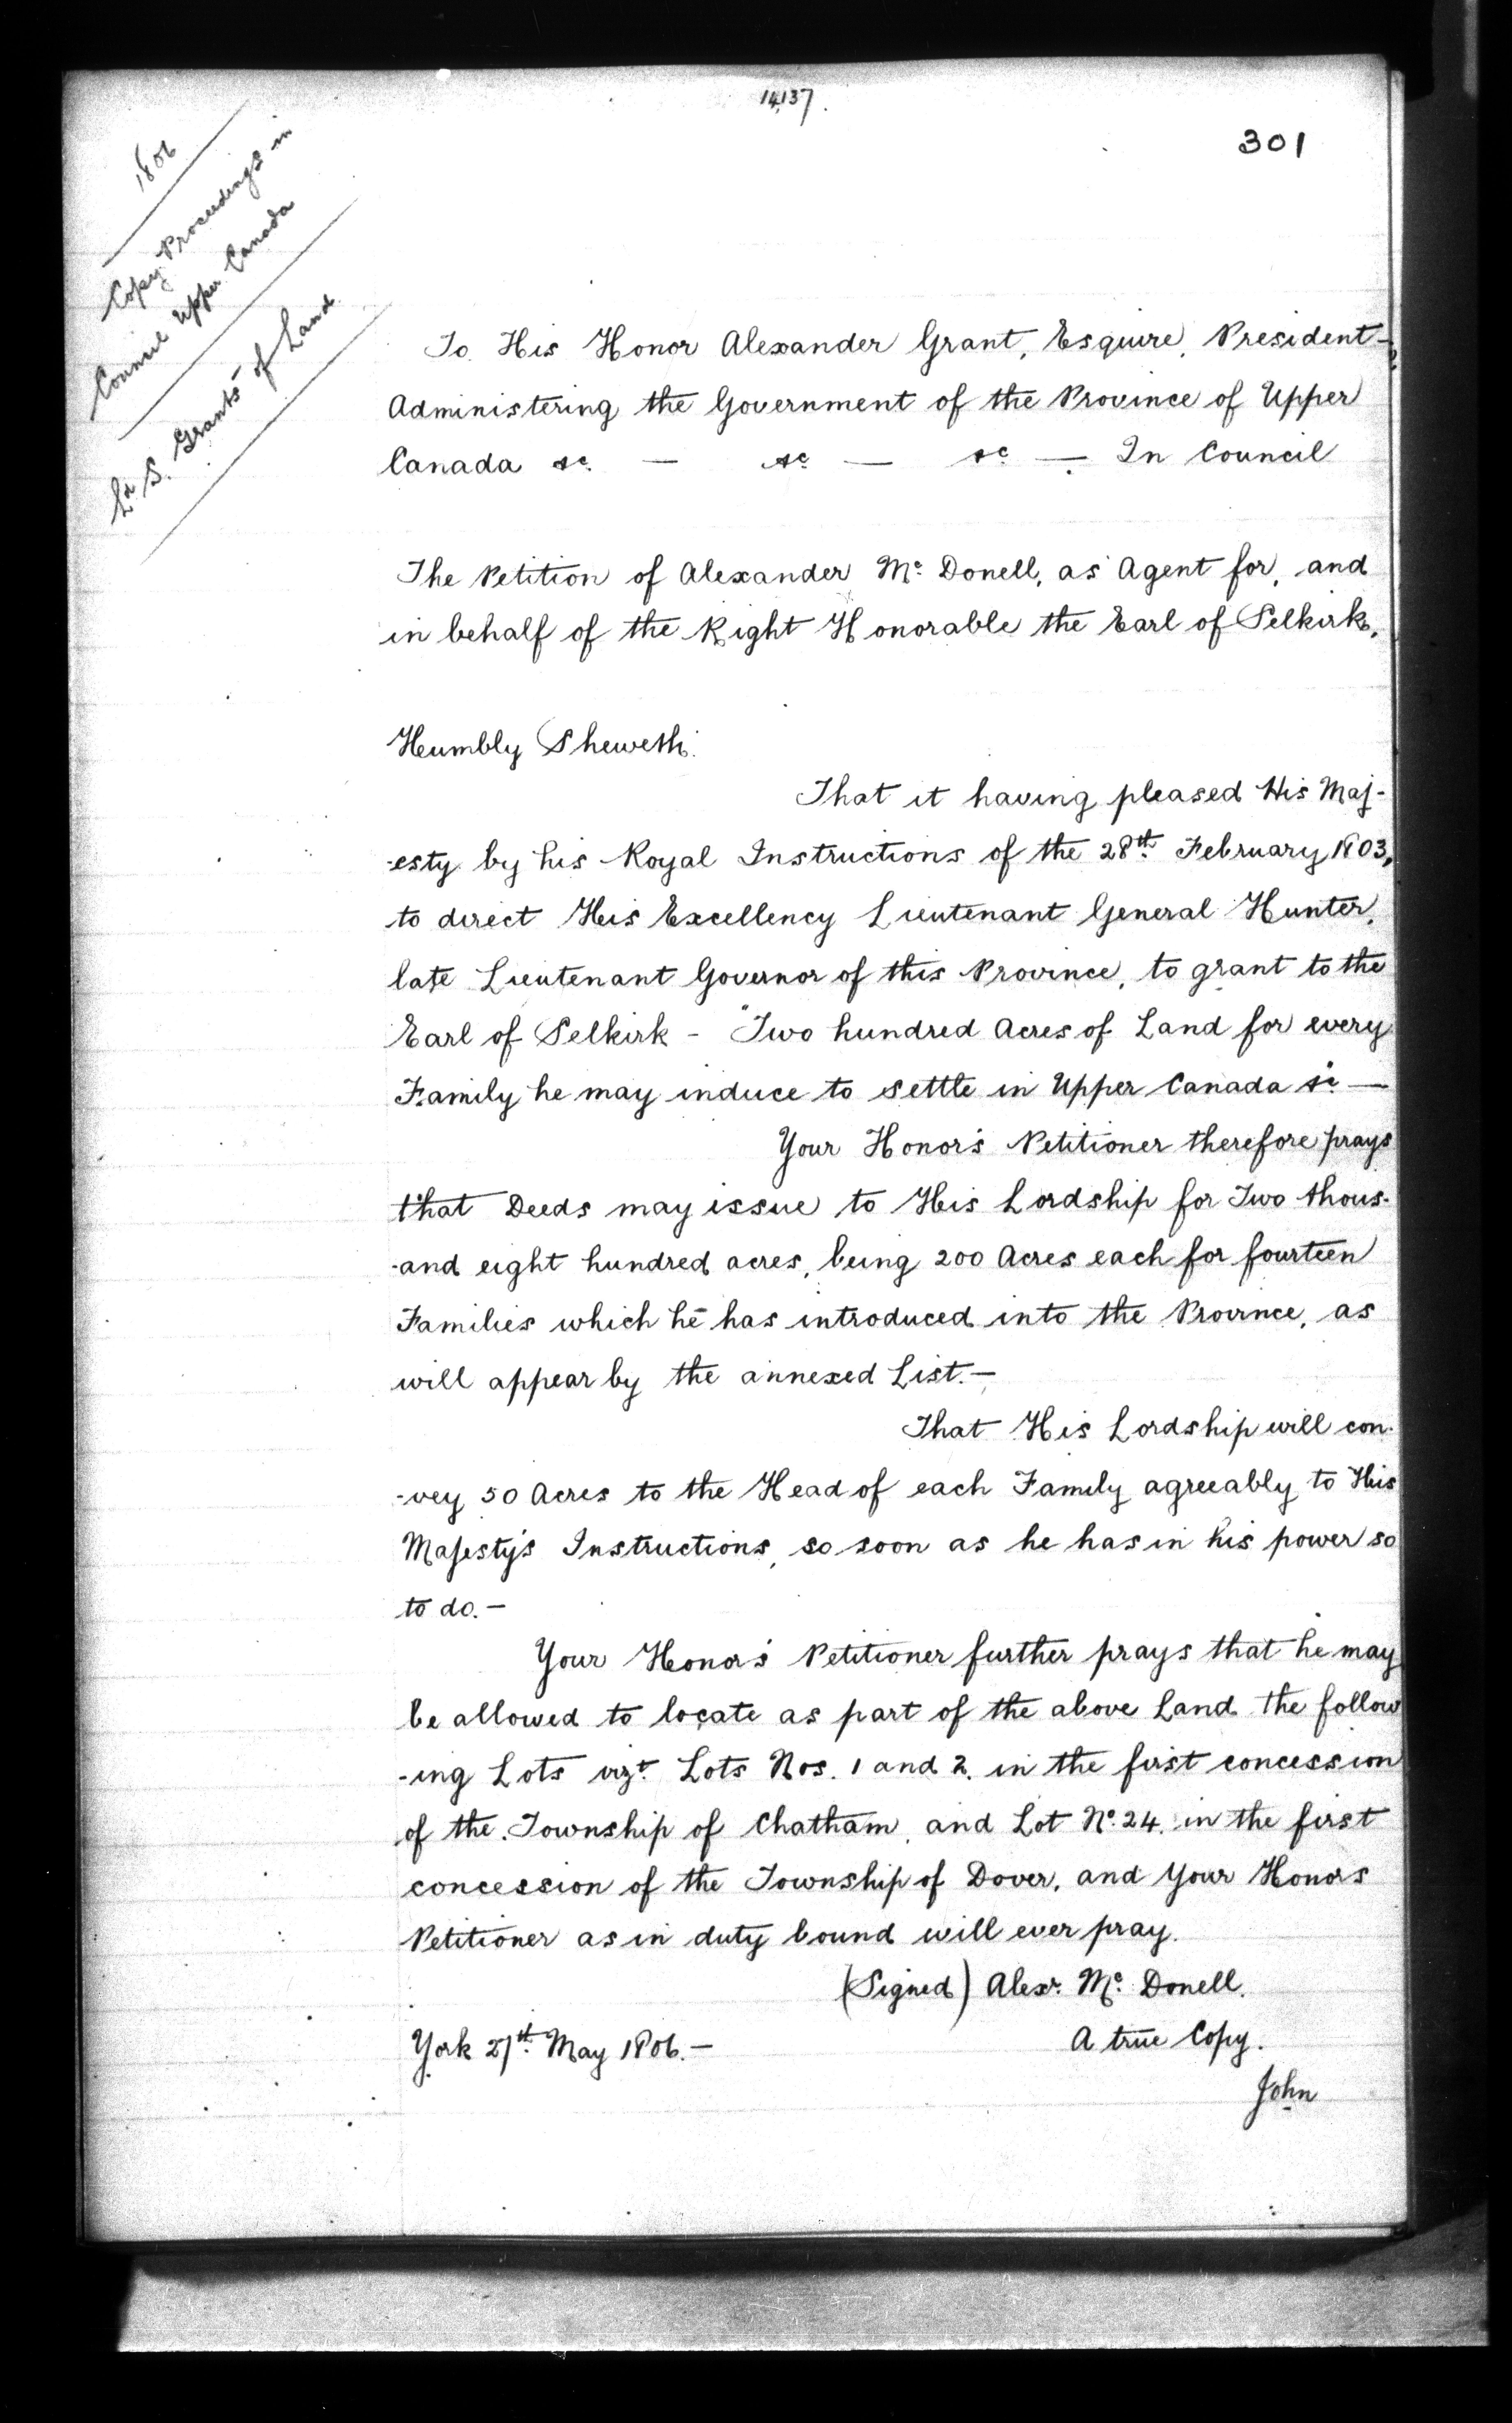 14137
301
1806
Copy Proceedings in
Council Upper Canada
Ld S. Grants of Land
To His Honor Alexander Grant, Esquire, President
Administering the Government of the Province of Upper
Canada &c. — &c — &c — In Council
The Petition of Alexander Mc Donell, as Agent for, and
in behalf of the Right Honorable the Earl of Selkirk.
Humbly Sheweth.
That it having pleased His Maj-
-esty by his Royal Instructions of the 28th February 1803,
to direct His Excellency Lieutenant General Hunter,
late Lieutenant Governor of this Province, to grant to the
Earl of Selkirk - "Two hundred Acres of Land for every
Family he may induce to settle in Upper Canada &c —
Your Honor's Petitioner therefore prays
that Deeds may issue to His Lordship for Two thous-
-and eight hundred acres, being 200 Acres each for fourteen
Families which he has introduced into the Province, as
will appear by the annexed List.—
That His Lordship will con-
-vey 50 Acres to the Head of each Family agreeably to His
Majesty's Instructions, so soon as he has in his power so
to do.—
Your Honor's Petitioner further prays that he may
be allowed to locate as part of the above Land the follow
-ing Lots vizt. Lots Nos. 1 and 2. in the first concession
of the Township of Chatham, and Lot No. 24. in the first
concession of the Township of Dover, and Your Honors
Petitioner as in duty bound will ever pray.
(Signed) Alexr. Mc Donell.
York 27th May 1806.—
A true Copy.
John